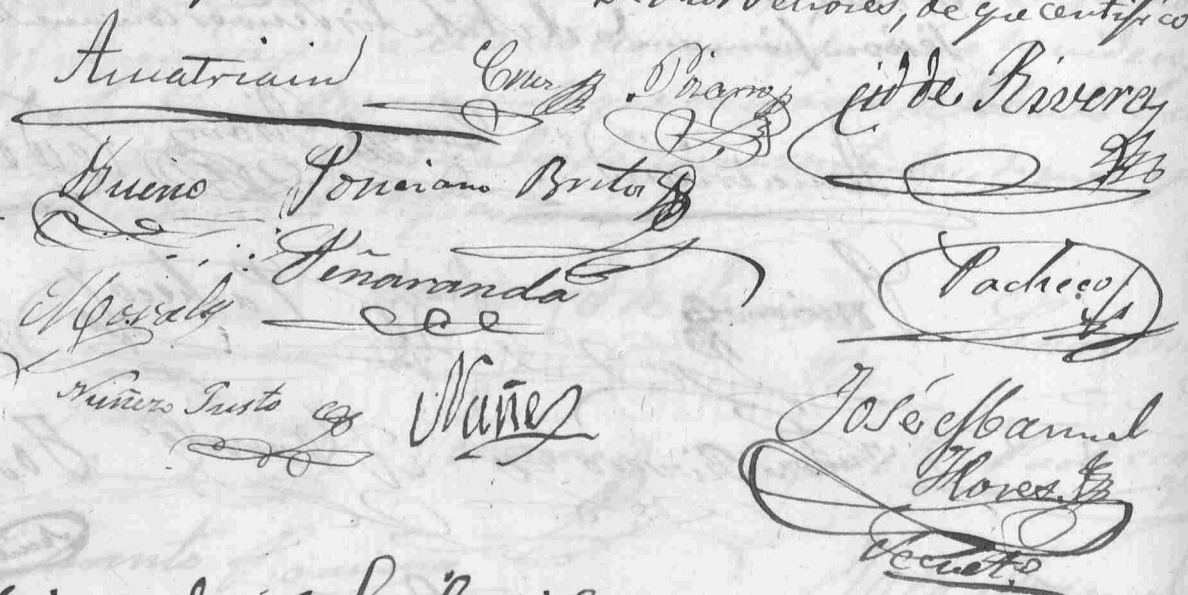 Señores, de que certifico
Amatriain Cruz Pizarro Cid de Rivera
Bueno Ponciano Brito
Peñaranda Pacheco
Morales
Nuñez Justo Nuñez José Manuel
Flores
Secreto.